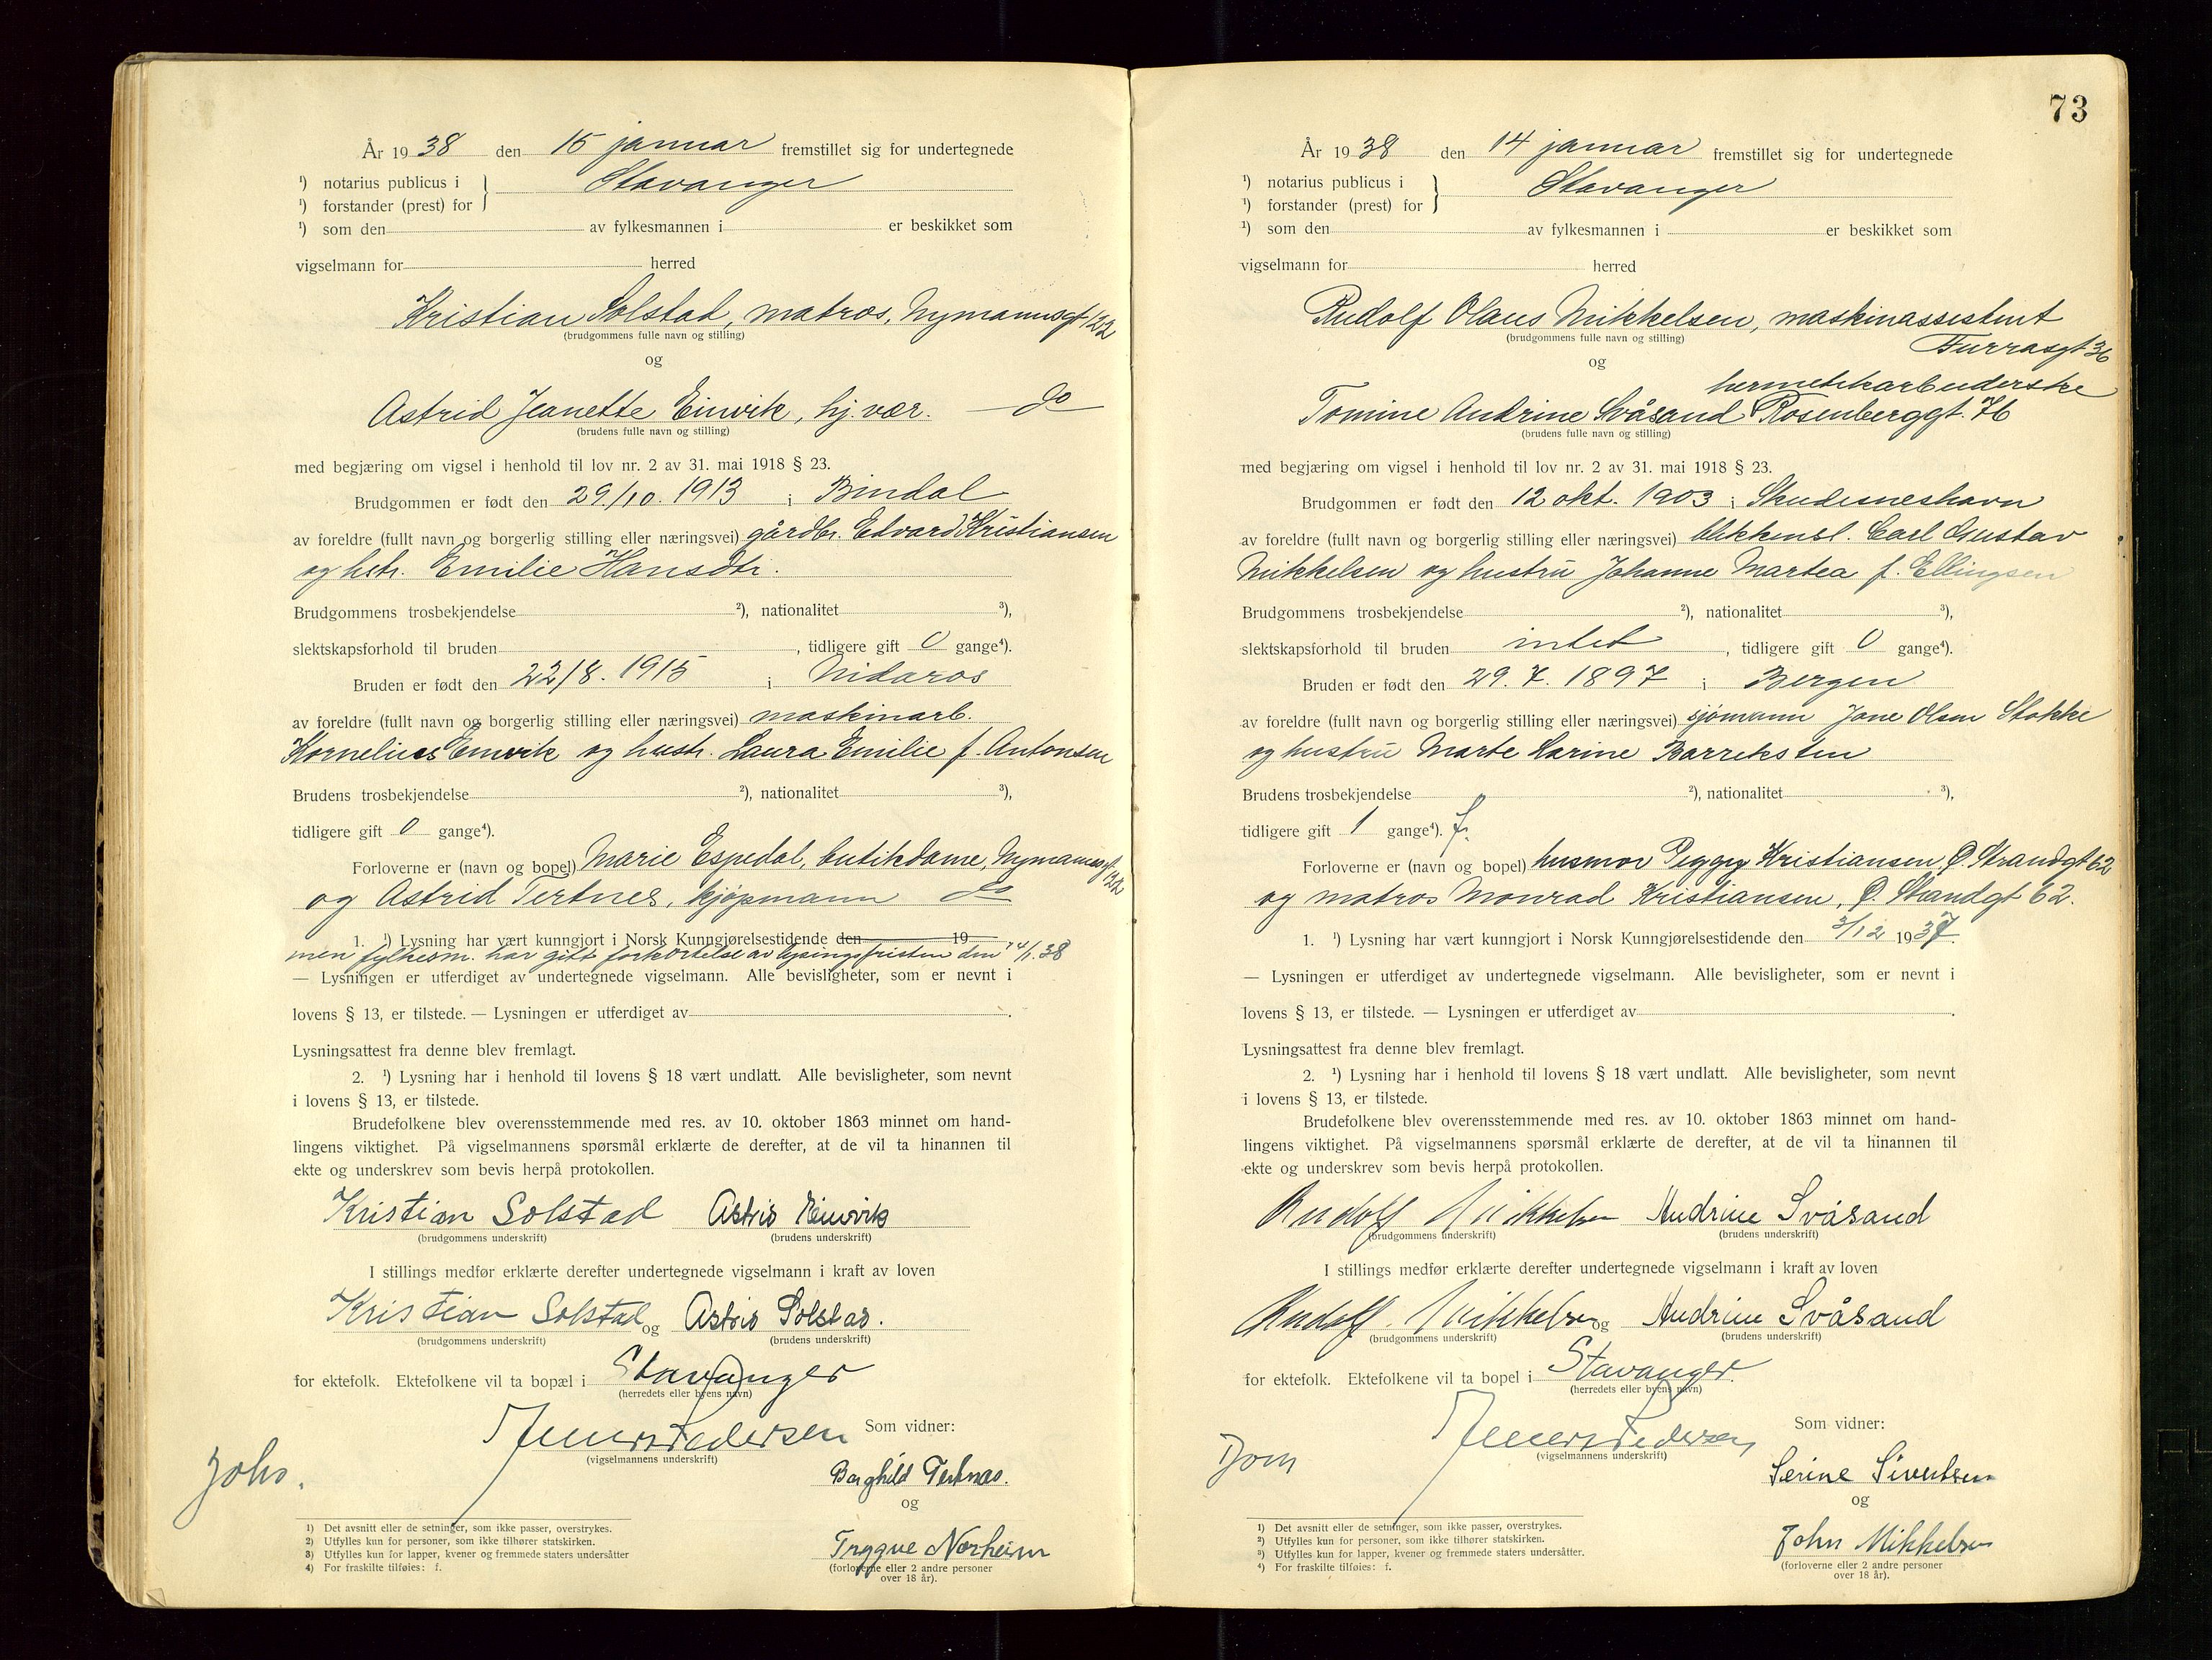 År 19 38 den 15 januar fremstillet sig for undertegnede
¹) notarius publicus i } Stavanger
¹) forstander (prest) for
¹) som den av fylkesmannen i er beskikket som
vigselmann for herred
Kristian Solstad, matros, Nymannsgt 122
(brudgommens fulle navn og stilling)
og
Astrid Jeanette Einvik, hj. vær. — do
(brudens fulle navn og stilling)
med begjæring om vigsel i henhold til lov nr. 2 av 31. mai 1918 § 23.
Brudgommen er født den 29/10. 1913 i Bindal
av foreldre (fullt navn og borgerlig stilling eller næringsvei) gårdbr. Edvard Kristiansen
og hstr. Emilie Hansdtr.
Brudgommens trosbekjendelse ²), nationalitet ³),
slektskapsforhold til bruden , tidligere gift 0 gange⁴).
Bruden er født den 22/8. 1915 i Nidaros
av foreldre (fullt navn og borgerlig stilling eller næringsvei) maskinarb.
Kornelius Einvik og hustr. Laura Emilie f. Antonsen
Brudens trosbekjendelse ²), nationalitet ³),
tidligere gift 0 gange⁴).
Forloverne er (navn og bopel) Marie Espedal, butikdame, Nymannsgt. 122
og Astrid Tertnes, kjøpmann do
1. ¹) Lysning har vært kunngjort i Norsk Kunngjørelsestidende den 19
men fylkesm. har gitt forkortelse av lysingsfristen den 14/1. 38
— Lysningen er utferdiget av undertegnede vigselmann. Alle bevisligheter, som er nevnt i
lovens § 13, er tilstede. — Lysningen er utferdiget av .
Lysningsattest fra denne blev fremlagt.
2. ¹) Lysning har i henhold til lovens § 18 vært undlatt. Alle bevisligheter, som nevnt
i lovens § 13, er tilstede.
Brudefolkene blev overensstemmende med res. av 10. oktober 1863 minnet om hand-
lingens viktighet. På vigselmannens spørsmål erklærte de derefter, at de vil ta hinannen til
ekte og underskrev som bevis herpå protokollen.
Kristian Solstad Astrid Einvik
(brudgommens underskrift) (brudens underskrift)
I stillings medfør erklærte derefter undertegnede vigselmann i kraft av loven
Kristian Solstad og Astrid Solstad.
(brudgommens underskrift) (brudens underskrift)
for ektefolk. Ektefolkene vil ta bopæl i Stavanger
(herredets eller byens navn)
Som vidner:
(vigselmannens underskrift)
Borghild Tertnæs.
Johs.
og
Trygve Norheim
(forloverne eller 2 andre personer
over 18 år).
1) Det avsnitt eller de setninger, som ikke passer, overstrykes.
2) Utfylles kun for personer, som ikke tilhører statskirken.
3) Utfylles kun for lapper, kvener og fremmede staters undersåtter
4) For fraskilte tilføies: f.
73
År 19 38 den 14 januar fremstillet sig for undertegnede
¹) notarius publicus i } Stavanger
¹) forstander (prest) for
¹) som den av fylkesmannen i er beskikket som
vigselmann for herred
Rudolf Olaus Mikkelsen, maskinassistent
(brudgommens fulle navn og stilling)
Furrasgt 36
og
hermetikkarbeiderske
Tomine Andrine Svåsand Rosenberggt. 76
(brudens fulle navn og stilling)
med begjæring om vigsel i henhold til lov nr. 2 av 31. mai 1918 § 23.
Brudgommen er født den 12 okt. 1903 i Skudesneshavn
av foreldre (fullt navn og borgerlig stilling eller næringsvei) blikkensl. Carl Gustav
Mikkelsen og hustru Johanne Martea f. Ellingsen
Brudgommens trosbekjendelse ²), nationalitet ³),
slektskapsforhold til bruden intet , tidligere gift 0 gange⁴).
Bruden er født den 29. 7. 1897 i Bergen
av foreldre (fullt navn og borgerlig stilling eller næringsvei) sjømann Jone Olsen Stokke
og hustru Marte Karine Barreksten
Brudens trosbekjendelse ²), nationalitet ³),
tidligere gift 1 gange⁴). f.
Forloverne er (navn og bopel) husmor Peggy Kristiansen, Ø. Strandgt 62
og matros Monrad Kristiansen, Ø. Standgt 62.
1. ¹) Lysning har vært kunngjort i Norsk Kunngjørelsestidende den 3/12 1937.
— Lysningen er utferdiget av undertegnede vigselmann. Alle bevisligheter, som er nevnt i
lovens § 13, er tilstede. — Lysningen er utferdiget av .
Lysningsattest fra denne blev fremlagt.
2. ¹) Lysning har i henhold til lovens § 18 vært undlatt. Alle bevisligheter, som nevnt
i lovens § 13, er tilstede.
Brudefolkene blev overensstemmende med res. av 10. oktober 1863 minnet om hand-
lingens viktighet. På vigselmannens spørsmål erklærte de derefter, at de vil ta hinannen til
ekte og underskrev som bevis herpå protokollen.
Rudolf Mikkelsen Andrine Svåsand
(brudgommens underskrift) (brudens underskrift)
I stillings medfør erklærte derefter undertegnede vigselmann i kraft av loven
Rudolf Mikkelsen og Andrine Svåsand
(brudgommens underskrift) (brudens underskrift)
for ektefolk. Ektefolkene vil ta bopel i Stavanger.
(herredets eller byens navn)
Som vidner:
(vigselmannens underskrift)
Serine Sivertsen
og
John Mikkelsen
(forloverne eller 2 andre personer
over 18 år).
1) Det avsnitt eller de setninger, som ikke passer, overstrykes.
2) Utfylles kun for personer, som ikke tilhører statskirken.
3) Utfylles kun for lapper, kvener og fremmede staters undersåtter.
4) For fraskilte tilføies: f.